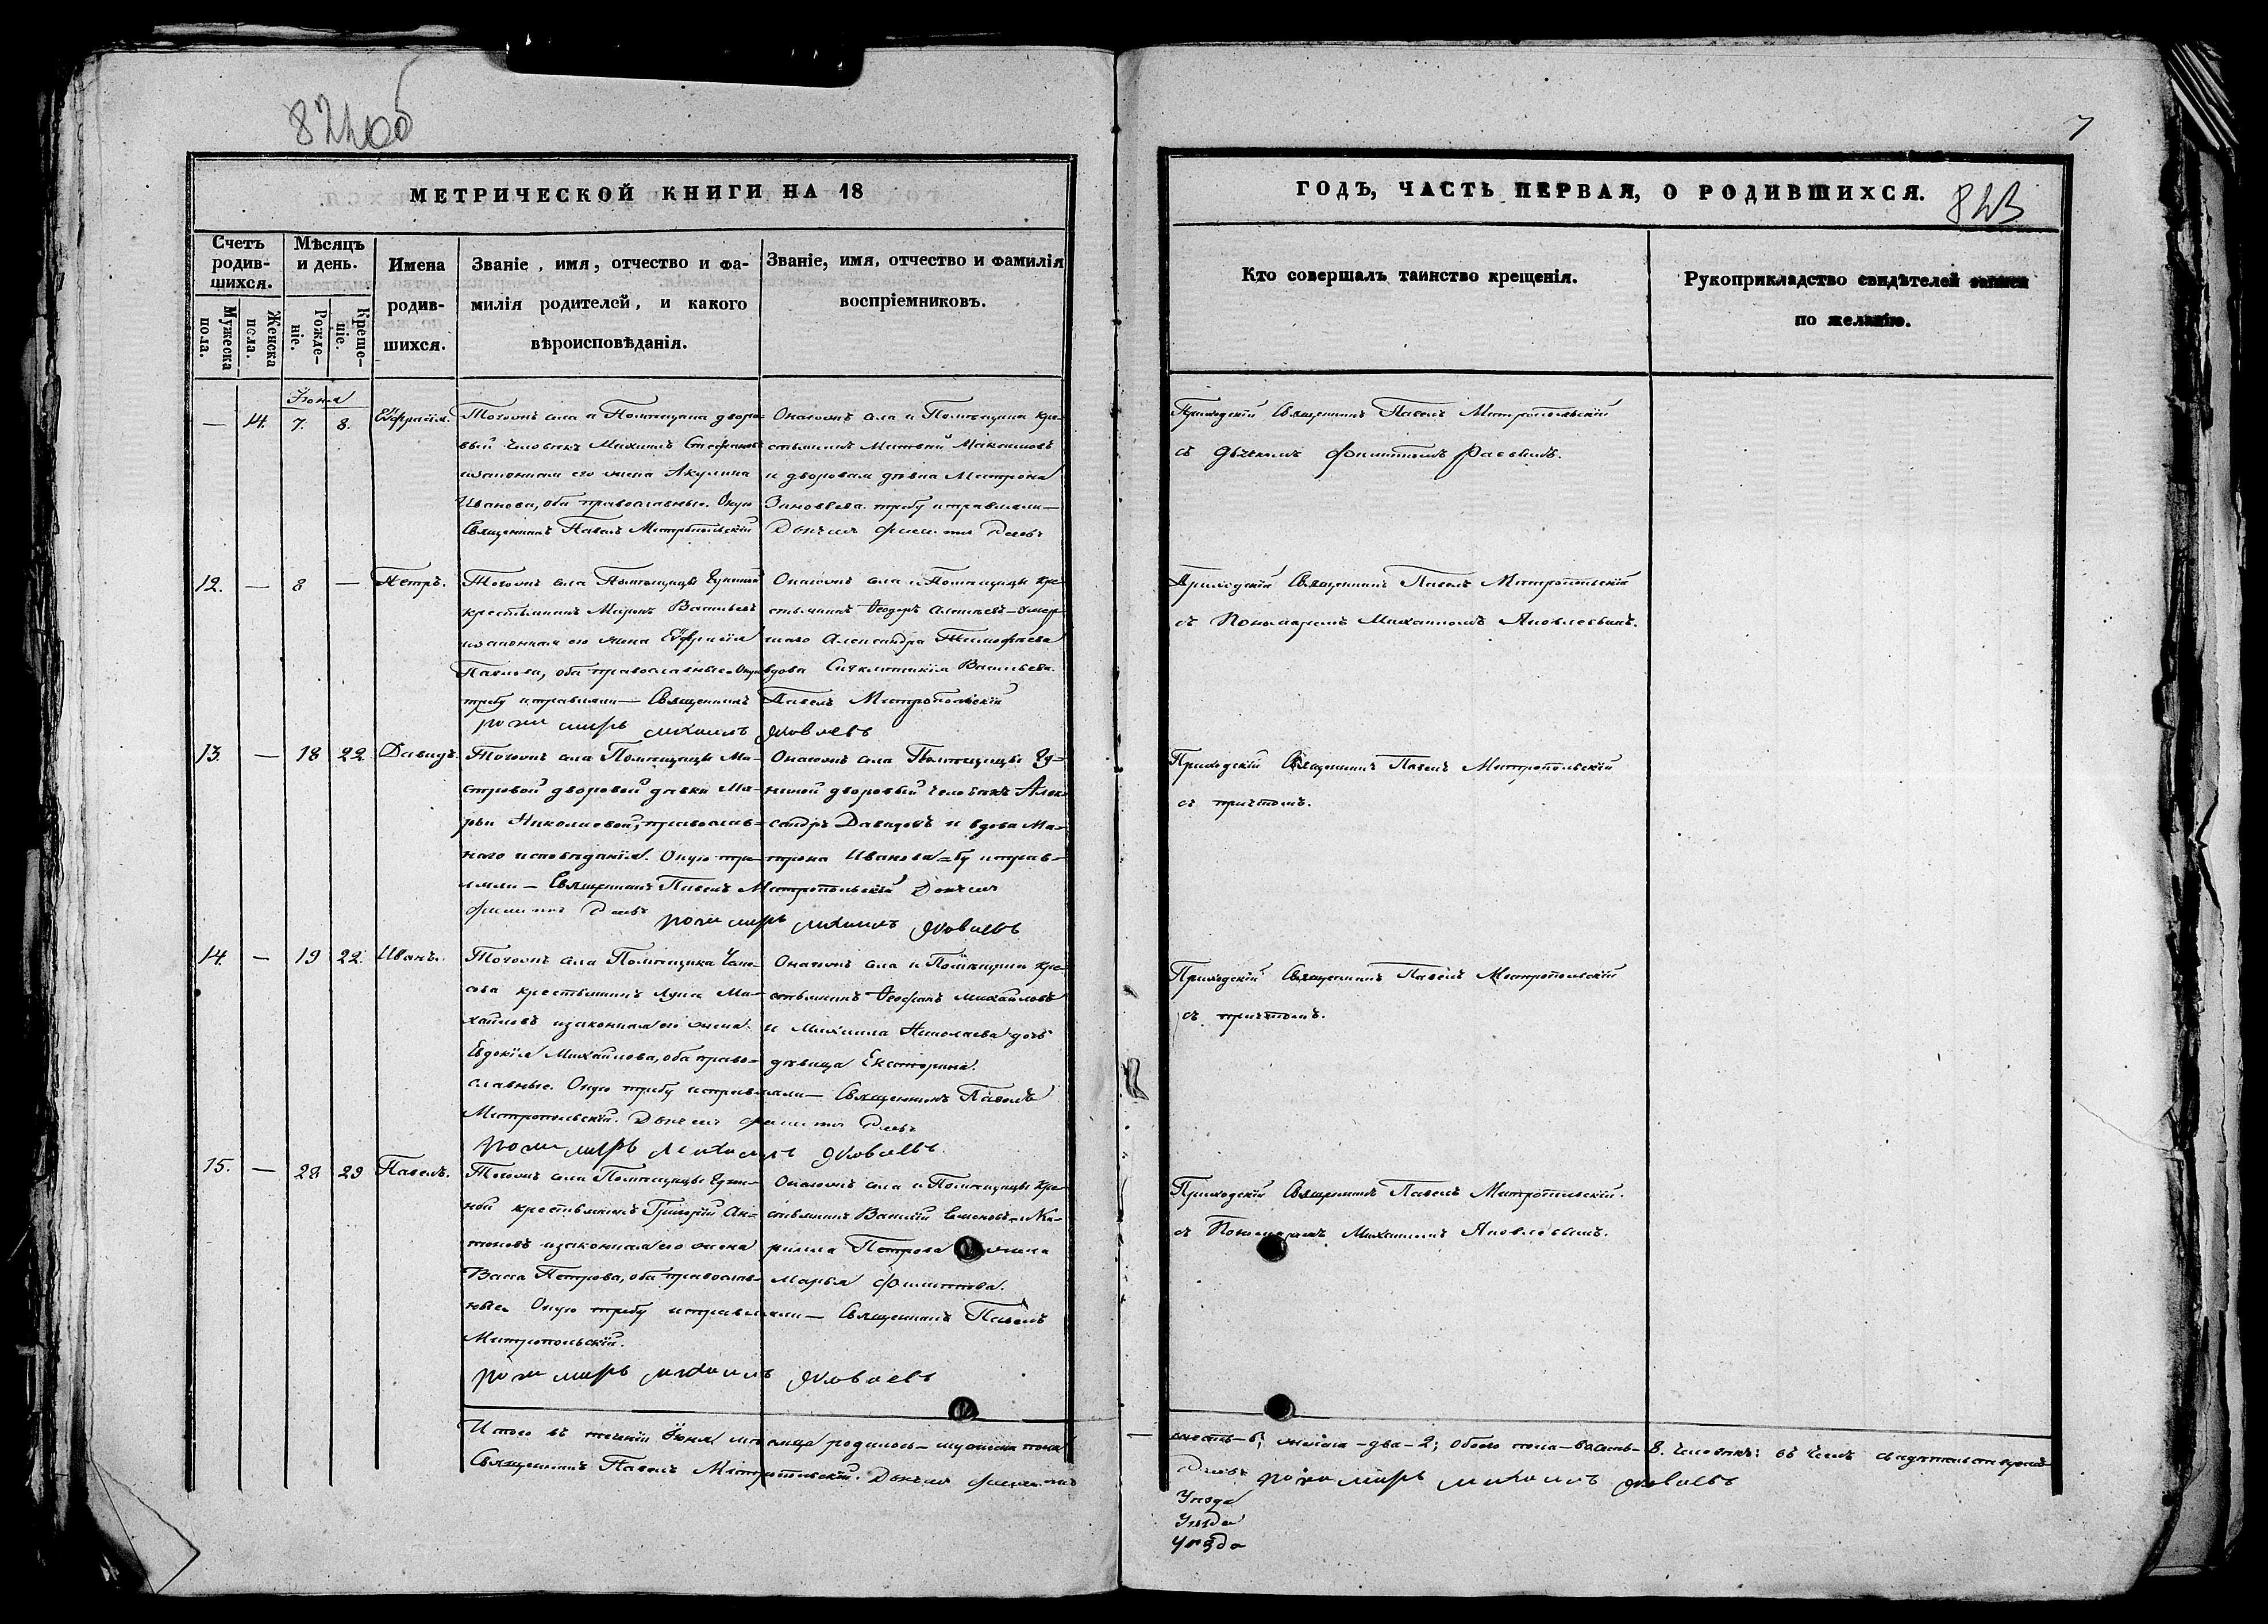 822об
МЕТРИЧЕСКОЙ КНИГИ НА 18
Счетъ родив-шихся.
Мужеска пола.
Женска пола.
Мѣсяцъ и день.
Рожде-ніе.
Креще-ніе.
Имена родив-шихся.
Званіе, имя, отчество и фа-
милія родителей, и какого
вѣроисповѣданія.
Званіе, имя, отчество и фамилія
воспріемниковъ.
Іюня
— 14. 7. 8. Евфрасія.
Тогожъ села и Помѣщика дворо-
вый человѣкъ Михаилъ Стефановъ
изаконная его жена Акулина
Иванова, оба православные. Оную
Священникъ Павелъ Митропольскій
Онагожъ села и Помѣщика кре-
стьянинъ Матвей Максимовъ
и дворовая дѣвка Матрона
Зиновьева. требу исправляли—
12. — 8 — Петръ.
Тогожъ села Помѣщицы
крестьянинъ Миронъ Васильевъ
изаконная его жена Евфрасія
Павлова, оба православные. Оную
требу исправляли— Священникъ Павелъ Митропольскій
Онагожъ села и Помѣщицы кре-
стьянинъ Ѳеодоръ Алексѣевъ
Александра Тимофѣева
вдова Васильева.
пономарь михаилъ яковлевъ
13. — 18 22 Давидъ.
Тогожъ села Помѣщицы
дворовой дѣвки Ма-
рьи Николаевой, православ-
наго исповѣданія. Оную тре-
ляли— Священникъ Павелъ Митропольскій
Онагожъ села Помѣщицы
дворовый человѣкъ Алек-
сандръ Давидовъ и вдова Ма-
трона Иванова бу исправ-
пономарь михаилъ яковлевъ
14. — 19 22. Иванъ.
Тогожъ села Помѣщика
крестьянинъ Лука Ми-
хайловъ изаконная его жена
Евдокія Михайлова, оба право-
славные. Оную требу исправляли— Священникъ Павелъ
Митропольскій.
Онагожъ села и Помѣщика кре-
стьянинъ Ѳеофанъ Михайловъ
и Михаила Николаева дочь
дѣвица Екатерина.
пономарь михаилъ яковлевъ
15. — 28 29 Павелъ.
Тогожъ села Помѣщицы
крестьянинъ Григорій Ан-
тоновъ изаконная его жена
Васса Петрова, оба православ-
ные. Оную требу исправляли— Священникъ Павелъ
Митропольскій.
Онагожъ села и Помѣщицы кре-
стьянинъ Василій Семеновъ и Ки-
рилла Петрова жена
Марья Филиппова.
пономарь михаилъ яковлевъ
Итого въ теченіи Іюня мѣсяца родилось— мужеска пола
Священникъ Павелъ Митропольскій.
7
ГОДЪ, ЧАСТЬ ПЕРВАЯ, О РОДИВШИХСЯ.
823
Кто совершалъ таинство крещенія.
Рукоприкладство свидѣтелей записи
по желанію.
Приходскій Священникъ Павелъ Митропольскій
съ Дьячкомъ Филиппомъ
Приходскій Священникъ Павелъ Митропольскій
съ Пономаремъ Михаиломъ Яковлевымъ.
Приходскій Священникъ Павелъ Митропольскій
съ причтомъ.
Приходскій Священникъ Павелъ Митропольскій
съ причтомъ.
Приходскій Священникъ Павелъ Митропольскій.
съ Пономаремъ Михаиломъ Яковлевымъ.
шесть—6; женска—два—2; обоего пола—восемь—8. человѣкъ: въ чемъ
пономарь михаилъ яковлевъ
Уѣзда
Уѣзда
Уѣзда